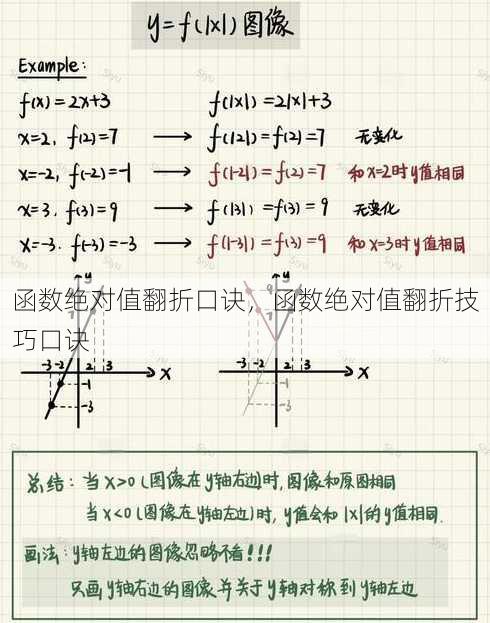 y=f(|x|)图像
Example:
f(x)=2x+3 f(|x|)=2|x|+3
x=2, f(2)=7 → f(|2|)=f(2)=7 无变化
x=-2, f(-2)=-1 → f(|-2|)=f(2)=7 和x=2时y值相同
x=3, f(3)=9 → f(|3|)=f(3)=9 无变化
x=-3. f(-3)=-3 → f(|-3|)=f(3)=9 和x=3时y值相同
y y
函数绝对值翻折口诀，函数绝对值翻折技
巧口诀
-3 -2 2 3 x -3 -2 2 3 x
-1 -1
-3 -3
总结：当x>0(图像在y轴右边)时,图像和原图相同
当x<0(图像在y轴左边)时，y值会和|x|的y值相同.
画法：y轴左边的图像忽略不看!!!
只画y轴右边的图像并关于y轴对称到y轴左边